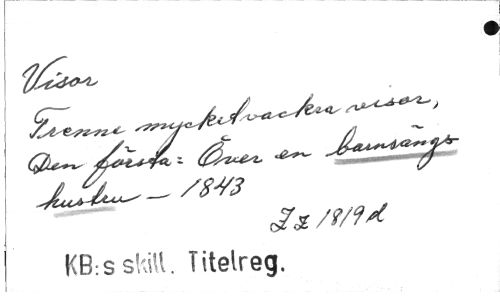 Visor
Trenne mycket vackra visor,
Den första: Över en barnsängs
hustru – 1843
Zz 1819d
KB:s skill. Titelreg.